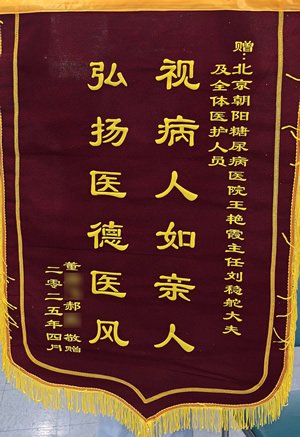 赠:北京朝阳糖尿病医院王艳霞主任刘稳舵大夫
及全体医护人员
视病人如亲人
弘扬医德医风
董 郝 敬赠
二零二五年四月